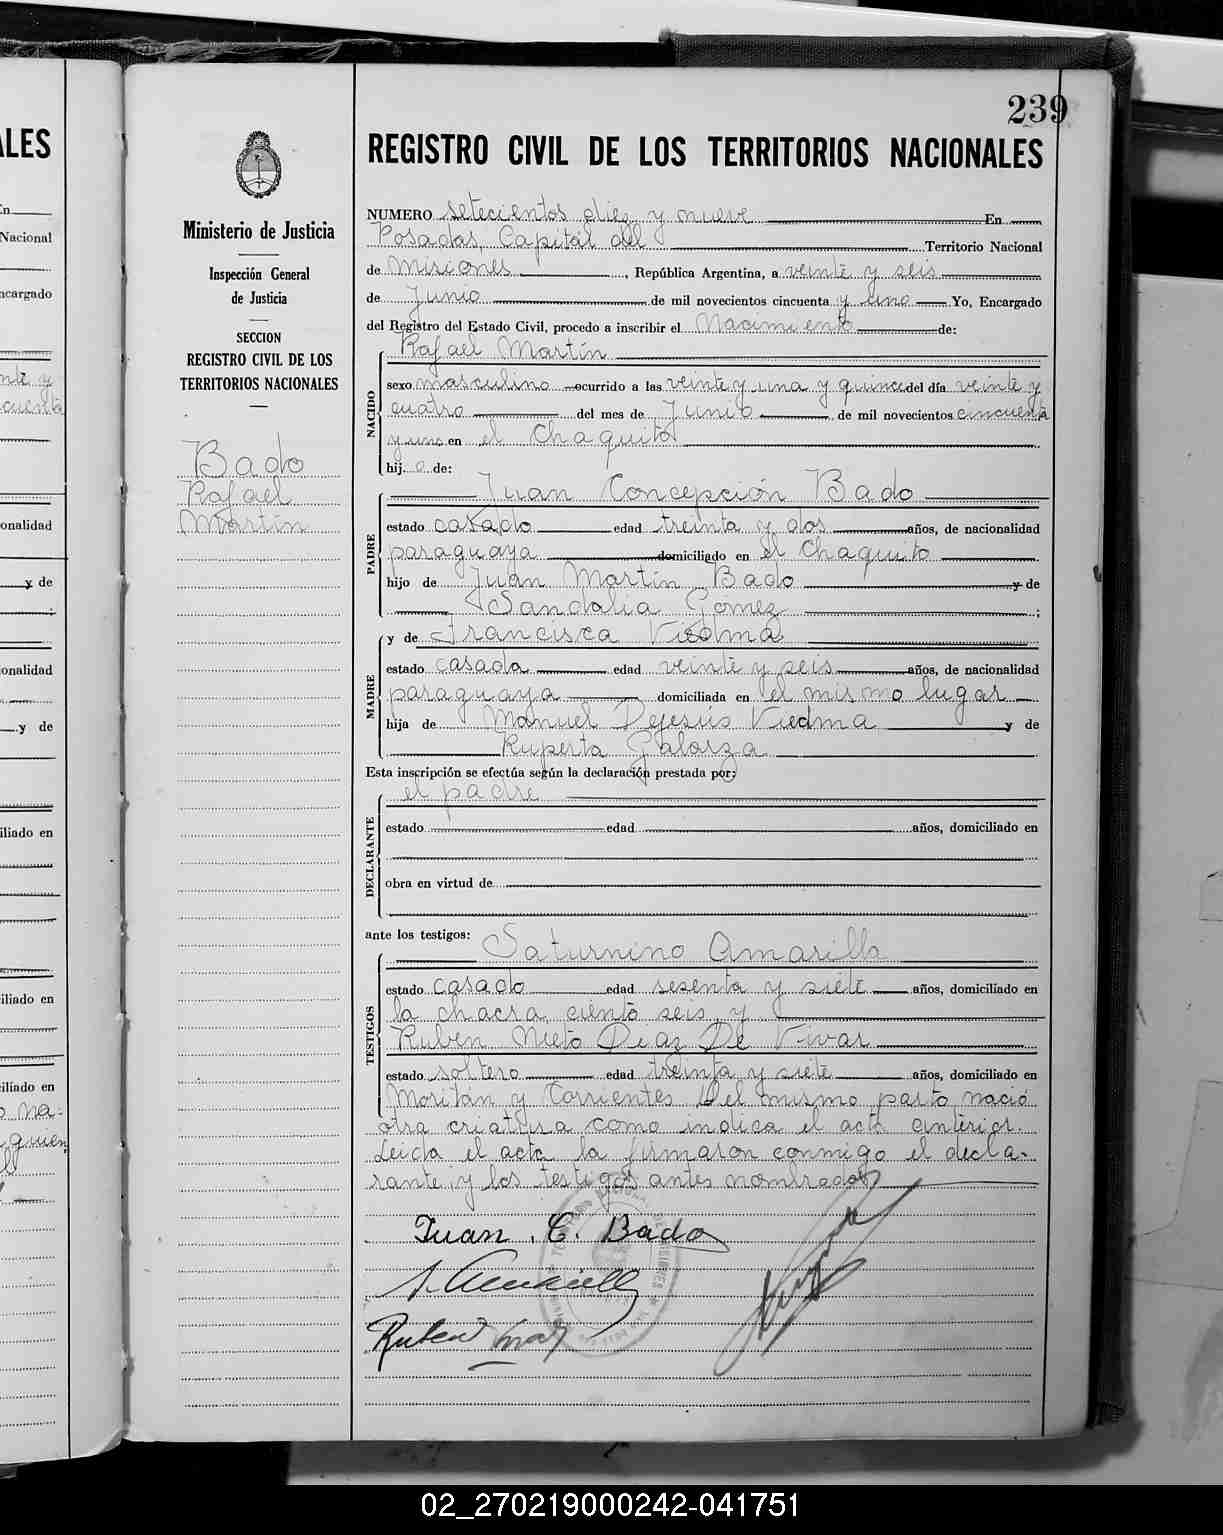 239
REGISTRO CIVIL DE LOS TERRITORIOS NACIONALES
Ministerio de Justicia
Inspección General
de Justicia
SECCION
REGISTRO CIVIL DE LOS
TERRITORIOS NACIONALES
Bado
Rafael
Martín
NUMERO setecientos diez y nueve En
Posadas, Capital del Territorio Nacional
de Misiones, República Argentina, a veinte y seis
de Junio de mil novecientos cincuenta y uno Yo, Encargado
del Registro del Estado Civil, procedo a inscribir el Nacimiento de:
Rafael Martín
NACIDO
sexo masculino ocurrido a las veinte y una y quince del día veinte y
cuatro del mes de Junio de mil novecientos cincuenta
y uno en el Chaquito
hij o de:
Juan Concepción Bado
PADRE
estado casado edad treinta y dos años, de nacionalidad
paraguaya domiciliado en el Chaquito
hijo de Juan Martín Bado y de
Sandalia Gómez ;
y de Francisca Viedma
MADRE
estado casada edad veinte y seis años, de nacionalidad
paraguaya domiciliada en el mismo lugar
hija de Manuel Dejesús Viedma y de
Ruperta Galarza
Esta inscripción se efectúa según la declaración prestada por:
el padre
DECLARANTE
estado edad años, domiciliado en
obra en virtud de
ante los testigos:
Saturnino Amarilla
TESTIGOS
estado casado edad sesenta y siete años, domiciliado en
la chacra ciento seis y
Ruben Nieto Diaz De Vivar
estado soltero edad treinta y siete años, domiciliado en
Moritan y Corrientes Del mismo parto nació
otra criatura como indica el acta anterior.
Leida el acta la firmaron conmigo el decla-
rante y los testigos antes nombrados
Juan C. Bado
S. Amarilla
Ruben
ALES
En
Nacional
ncargado
nte y
cuenta
onalidad
y de
;
onalidad
y de
iliado en
iliado en
iliado en
o na=
quien
02_270219000242-041751